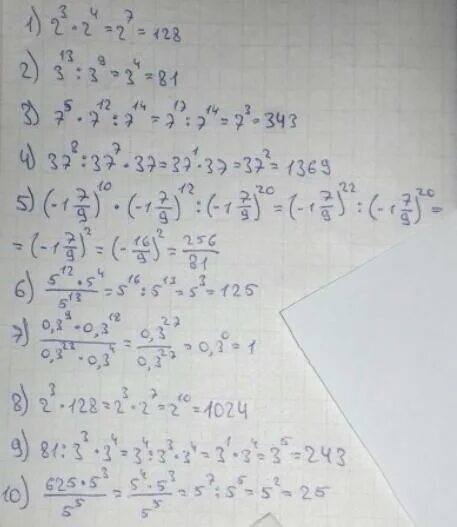 1) 2³·2⁴=2⁷=128
2) 3¹³:3⁹=3⁴=81
3) 7⁵·7¹²:7¹⁴=7¹⁷:7¹⁴=7³=343
4) 37⁸:37⁷·37=37¹·37=37²=1369
5) (-1 7/9)¹⁰·(-1 7/9)¹²:(-1 7/9)²⁰=(-1 7/9)²²:(-1 7/9)²⁰=
=(-1 7/9)²=(-16/9)²=256/81
6) (5¹²·5⁴)/5¹³=5¹⁶:5¹³=5³=125
7) (0,3⁹·0,3¹⁸)/(0,3²³·0,3⁴)=0,3²⁷/0,3²⁷=0,3⁰=1
8) 2³·128=2³·2⁷=2¹⁰=1024
9) 81:3³·3⁴=3⁴:3³·3⁴=3¹·3⁴=3⁵=243
10) (625·5³)/5⁵=(5⁴·5³)/5⁵=5⁷:5⁵=5²=25